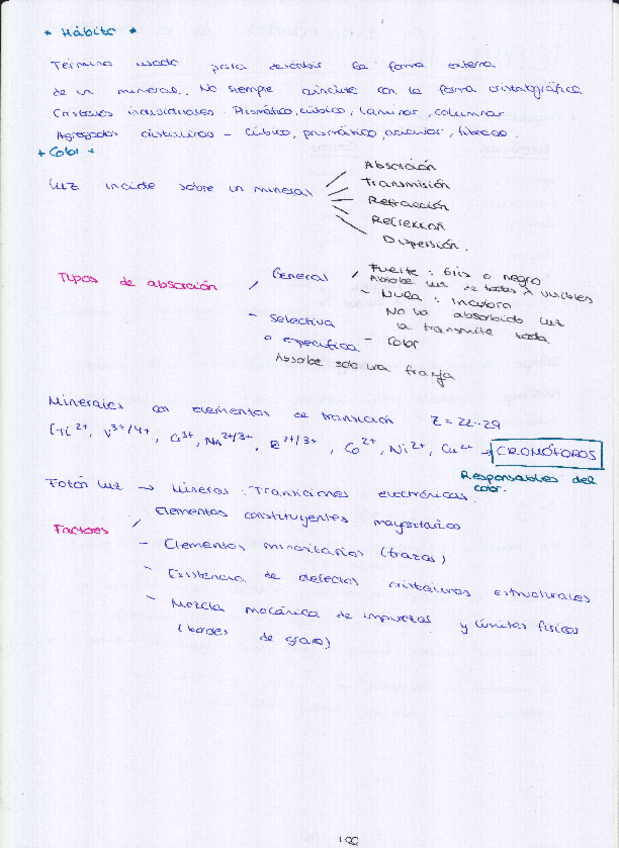 * Hábito *
Término usado para describir la forma externa
de un mineral. No siempre coincide con la forma cristalográfica
Cristales individuales: Prismático, cúbico, laminar, columnar
Agregados cristalinos - Cúbico, prismático, acicular, fibroso.
* Color *
Luz incide sobre un mineral
Absorción
Transmisión
Refracción
Reflexión
Dispersión.
Tipos de absorción
General
Fuerte: Gris o negro
Absorbe luz de todas λ visibles
- Nula: incoloro
No ha absorbido luz
la transmite toda
- Selectiva
o específica - Color
Absorbe solo una franja
Minerales con elementos de transición Z = 22-29
(Ti 2+, V3+/4+, Cr3+, Mn2+/3+, Fe2+/3+, Co2+, Ni2+, Cu2+ → CROMÓFOROS
Responsables del
color.
Fotón luz → Mineral: Transiciones electrónicas.
Factores
Elementos constituyentes mayoritarios
- Elementos minoritarios (trazas)
- Existencia de defectos cristalinos estructurales
- Mezcla mecánica de impurezas y límites físicos
(bordes de grano)